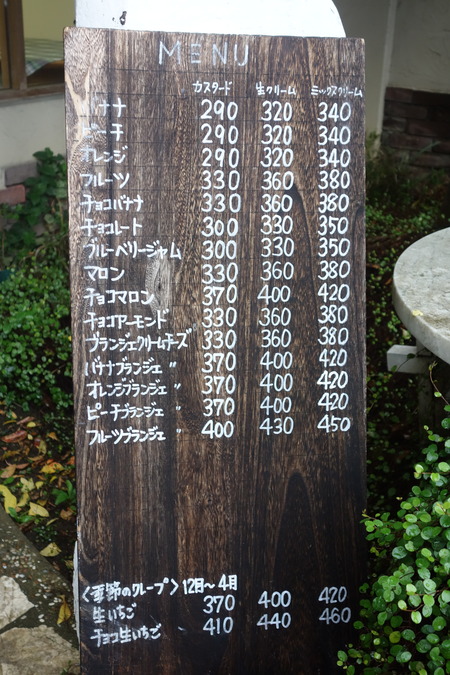 MENU
カスタード 生クリーム ミックスクリーム
バナナ 290 320 340
ピーチ 290 320 340
オレンジ 290 320 340
フルーツ 330 360 380
チョコバナナ 330 360 380
チョコレート 300 330 350
ブルーベリージャム 300 330 350
マロン 330 360 380
チョコマロン 370 400 420
チョコアーモンド 330 360 380
ブランジェクリームチーズ 330 360 380
バナナブランジェ 〃 370 400 420
オレンジブランジェ 〃 370 400 420
ピーチブランジェ 〃 370 400 420
フルーツブランジェ 〃 400 430 450
〈季節のクレープ〉12月〜4月
生いちご 370 400 420
チョコ生いちご 410 440 460